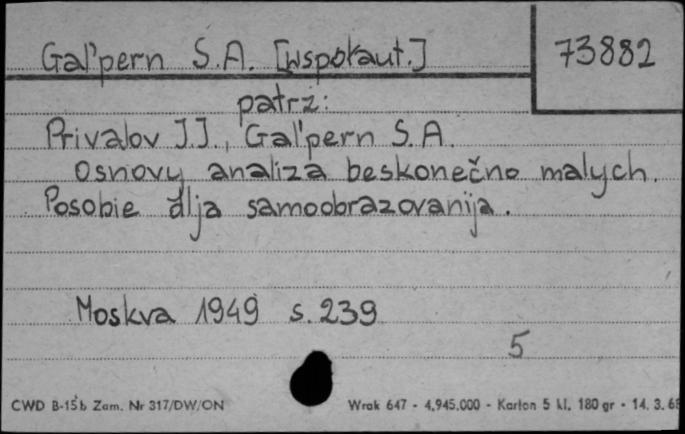 Gal'pern S.A. [współaut.]
73882
patrz:
Privalov J.J., Gal'pern S.A.
Osnovy analiza beskonečno malych.
Posobie dlja samoobrazovanija.
Moskva 1949 s. 239
5
CWD B-15b Zam. Nr 317/DW/ON
Wrak 647 - 4.945.000 - Karton 5 kl. 180 gr - 14. 3. 68